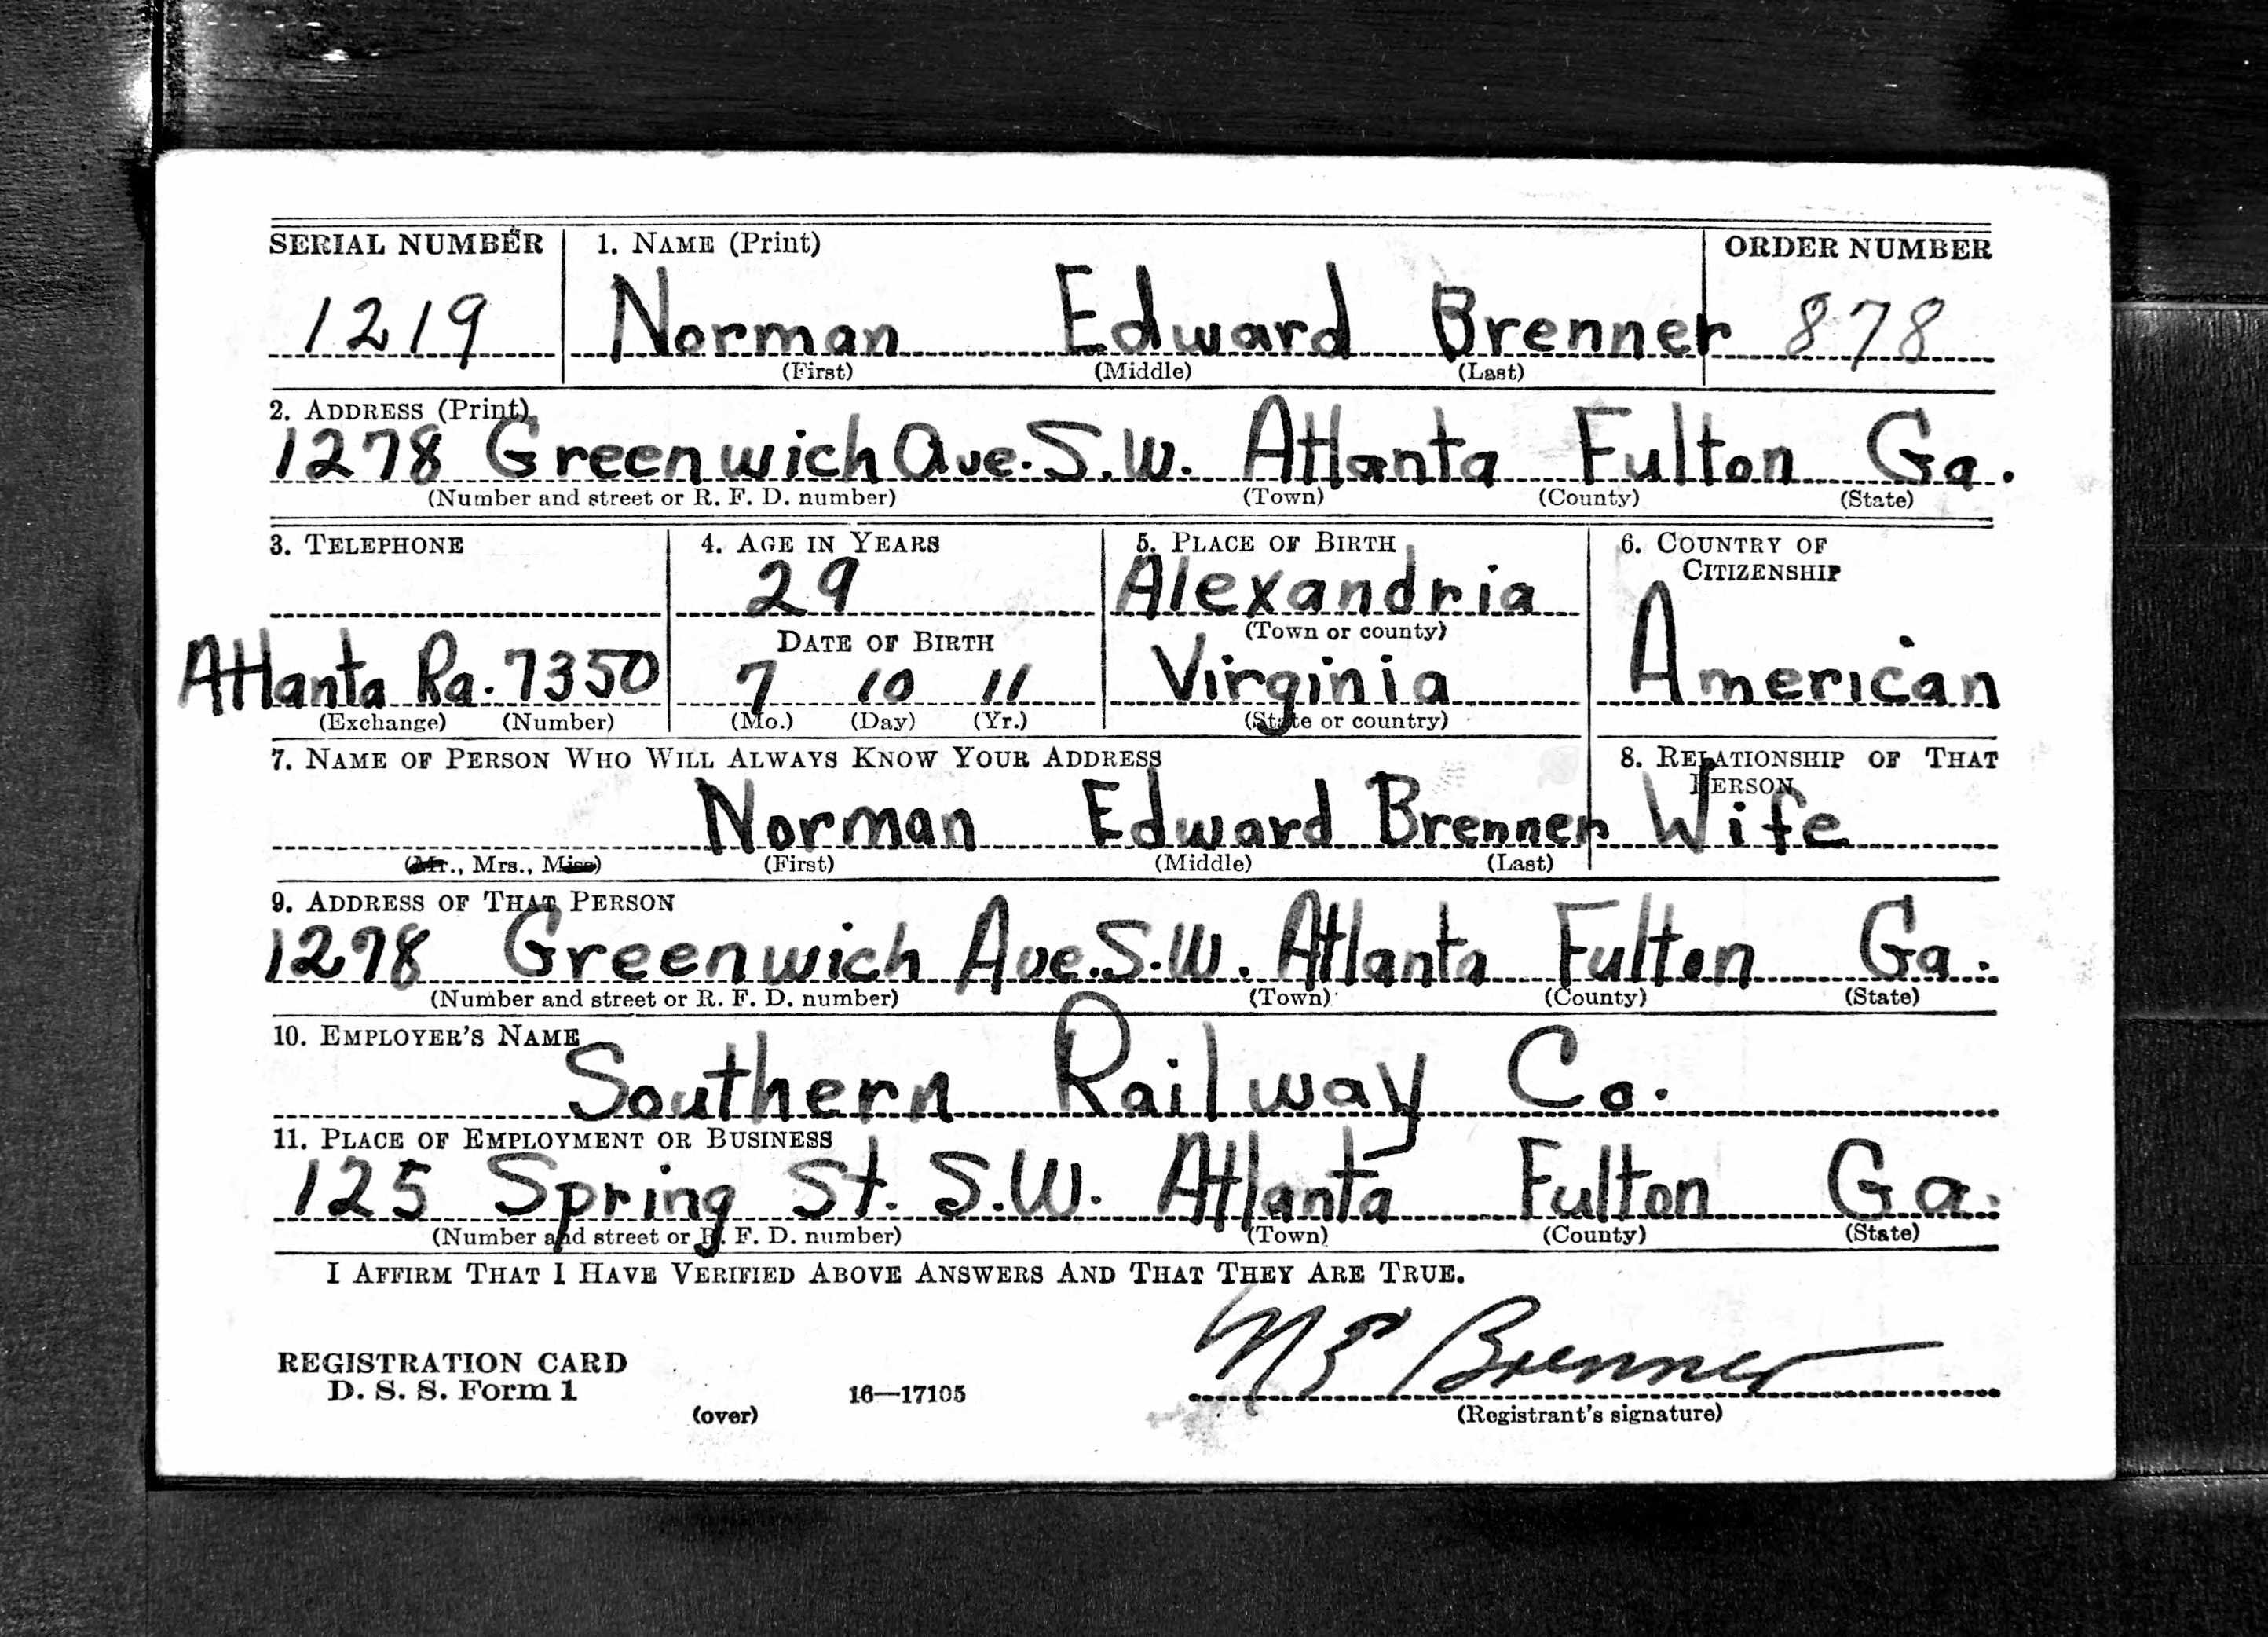 SERIAL NUMBER 1. NAME (Print) ORDER NUMBER
1219 Norman Edward Brenner 878
(First) (Middle) (Last)
2. ADDRESS (Print)
1278 Greenwich Ave. S.W. Atlanta Fulton Ga.
(Number and street or R. F. D. number) (Town) (County) (State)
3. TELEPHONE 4. AGE IN YEARS 5. PLACE OF BIRTH 6. COUNTRY OF
CITIZENSHIP
29 Alexandria
(Town or county)
DATE OF BIRTH
Atlanta Ra. 7350 7 10 11 Virginia American
(Exchange) (Number) (Mo.) (Day) (Yr.) (State or country)
7. NAME OF PERSON WHO WILL ALWAYS KNOW YOUR ADDRESS 8. RELATIONSHIP OF THAT
PERSON
Norman Edward Brenner Wife
(Mr., Mrs., Miss) (First) (Middle) (Last)
9. ADDRESS OF THAT PERSON
1278 Greenwich Ave. S.W. Atlanta Fulton Ga.
(Number and street or R. F. D. number) (Town) (County) (State)
10. EMPLOYER'S NAME
Southern Railway Co.
11. PLACE OF EMPLOYMENT OR BUSINESS
125 Spring St. S.W. Atlanta Fulton Ga.
(Number and street or R. F. D. number) (Town) (County) (State)
I AFFIRM THAT I HAVE VERIFIED ABOVE ANSWERS AND THAT THEY ARE TRUE.
N E Brenner
REGISTRATION CARD
D. S. S. Form 1 16—17105
(over) (Registrant's signature)